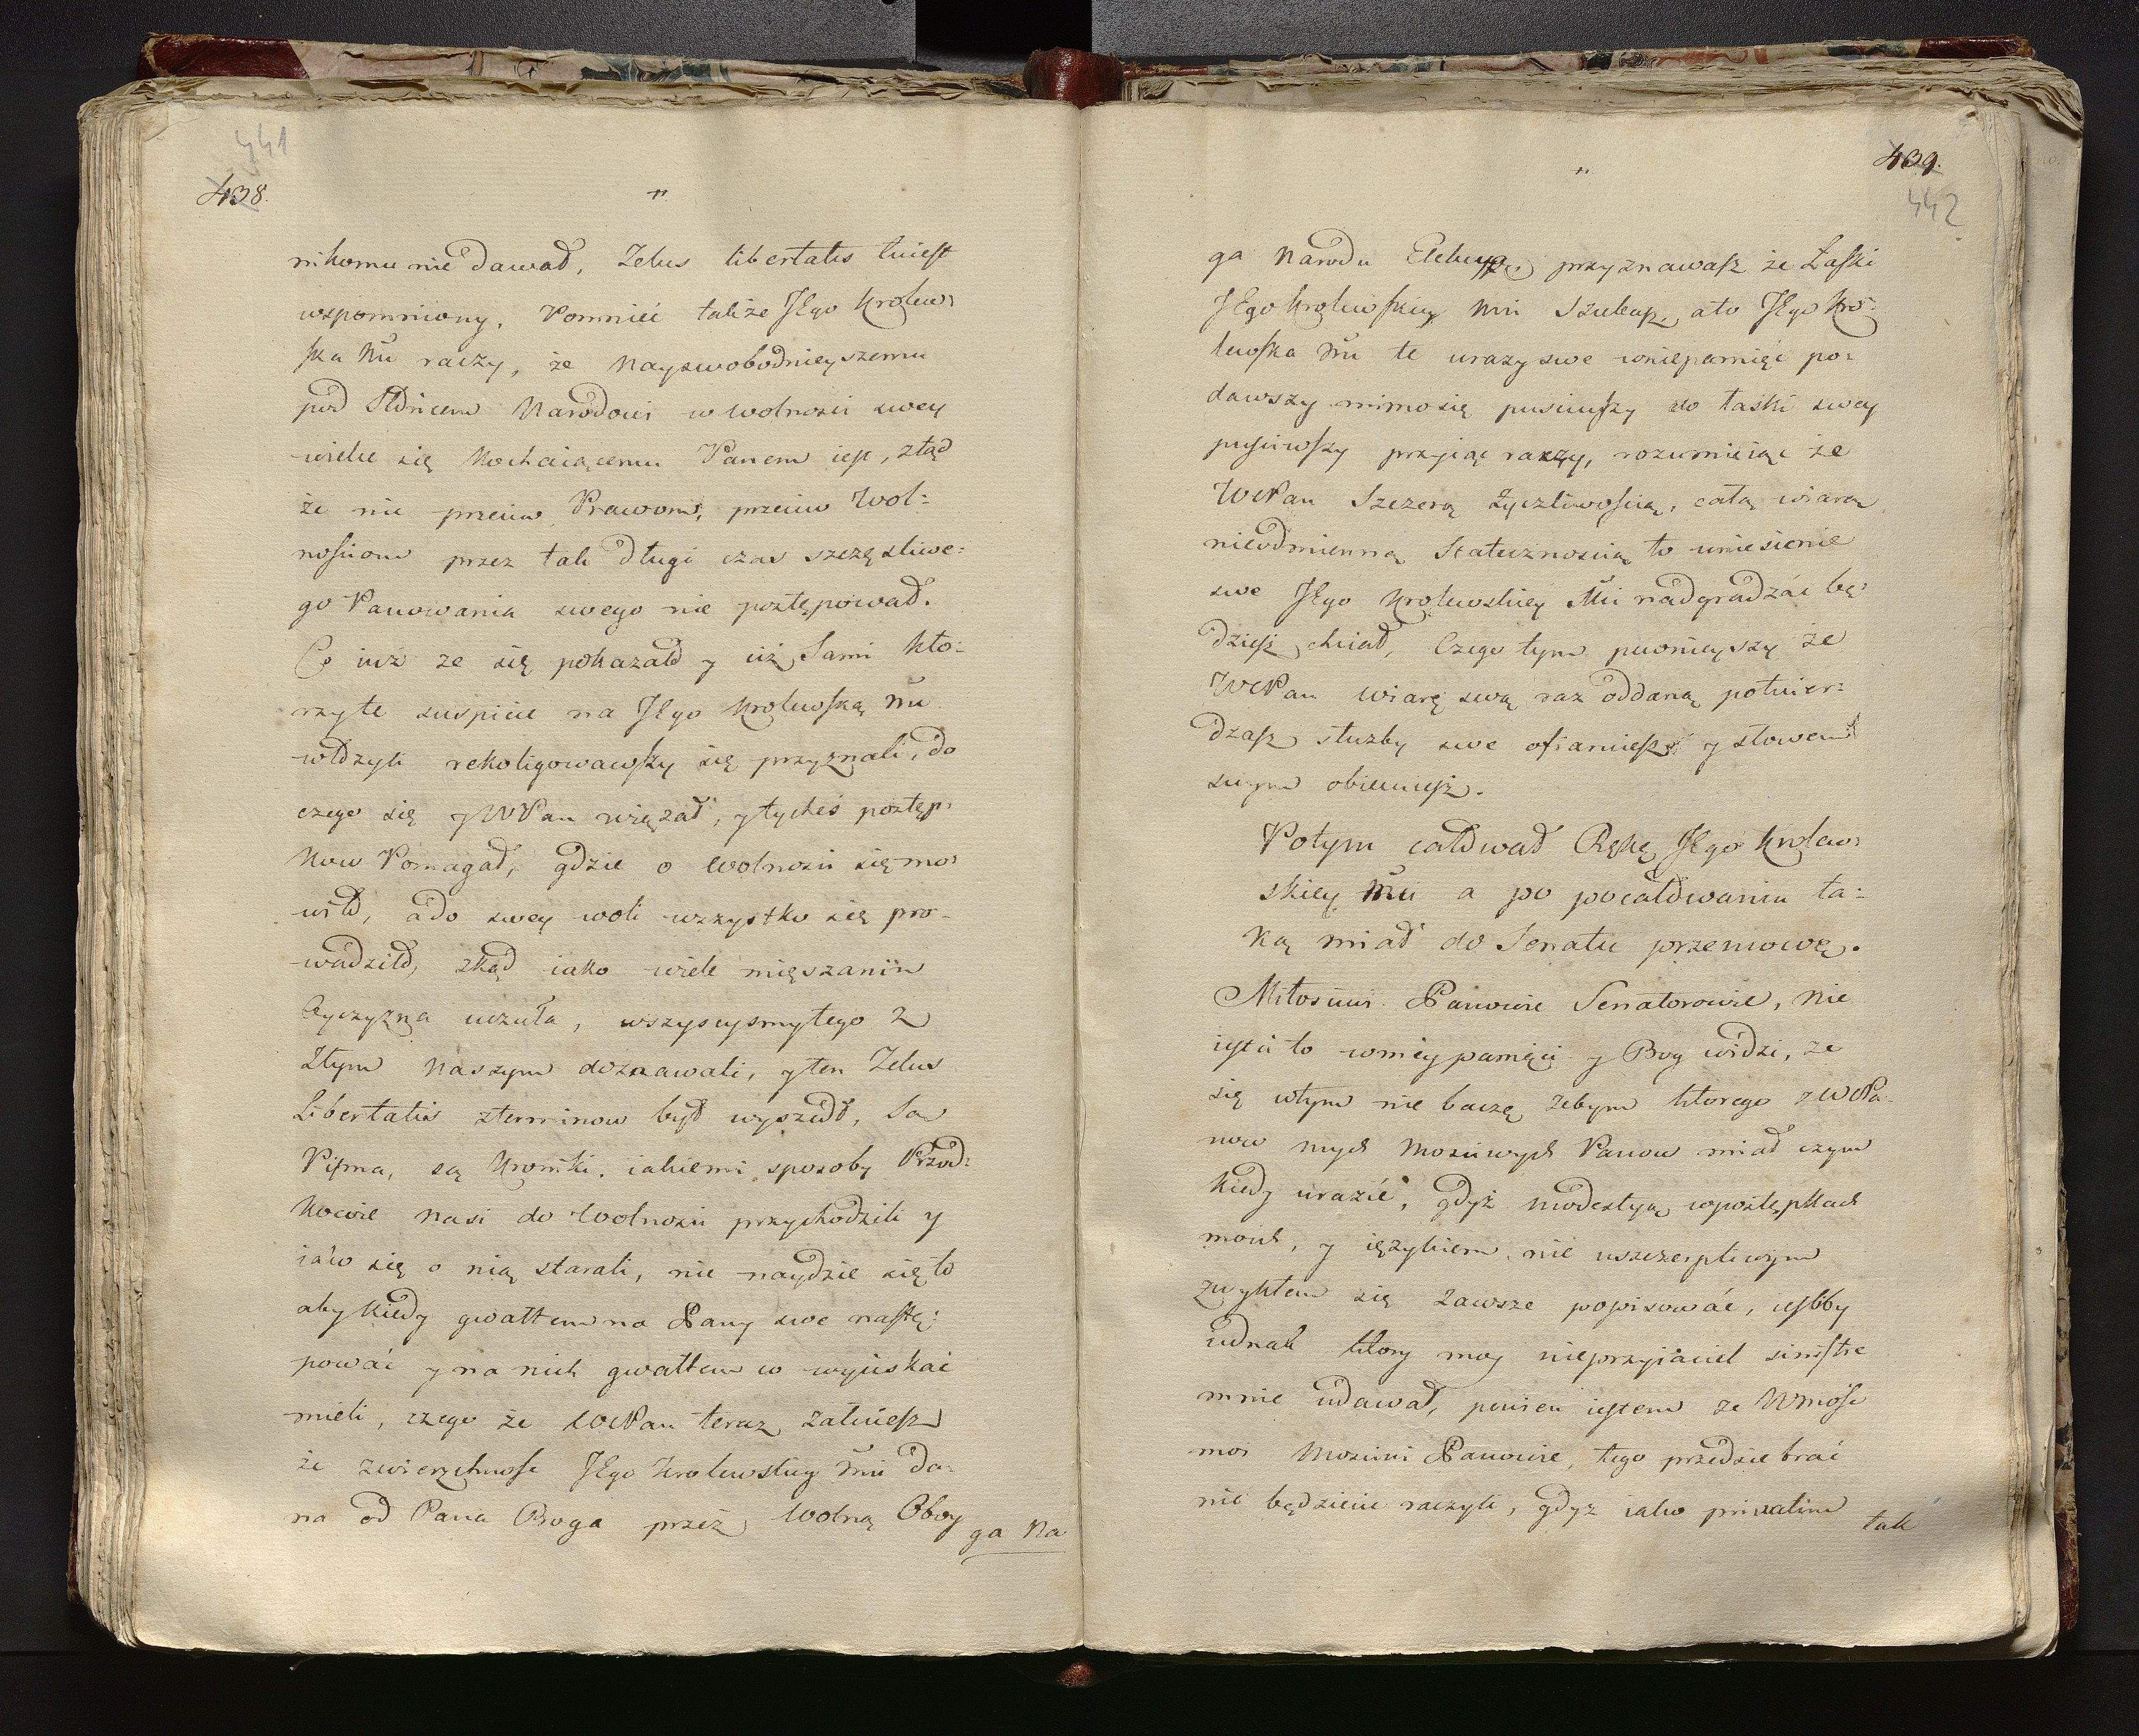 441
438.
nikomu nie dawał, Zelus libertatis tu iest
wspomniony. Pomnieć także JEgo Krolew:
ska Mć raczy, że Nayswobodnieyszemu
pod Słońcem Narodowi w wolnosci swey
wielce się Kochaiącemu Panem iest, ztąd
że nic przeciw Prawom, przeciw Wol:
nosciom przez tak długi czas szczęsliwe:
go Panowania swego nie postępował.
Co iuż ze się pokazało y iuż Sami kto:
rzy te suspicie na JEgo Krolewską Mć
włozyli rekoligowawszy się przyznali, do
czego się y WPan wiązał, y tycheś postęp:
kow Pomagał, gdzie o Wolnosci się mo:
wiło, a do swey woli wszystko się pro:
wadziło, zkąd iako wiele mięszanin
Oyczyzna uczuła, wszyscysmy tego z
Złym Naszym doznawali, y ten Zelus
Libertatis z terminow był wyszedł, Są
Pisma, są Kroniki, iakiemi sposoby Przod:
kowie nasi do Wolnosci przychodzili y
iako się o nią starali, nie naydzie się to
aby kiedy gwałtem na Pany swe nastę:
pować y na nich gwałtem co wyciskać
mieli, czego że WMPan teraz żałuiesz
że zwierzchnosc JEgo Krolewskiey Mci da:
na od Pana Boga przez Wolną Oboy
ga Na
439.
442
ga Narodu Elekcyą, przyznawasz że Łaski
JEgo Krolewskiey Mci Szukasz, a to JEgo Kro:
lewska Mć te urazy swe w niepamięć po:
dawszy mimo się pusciwszy do łaski swey
pusciwszy przyiąć raczy, rozumieiąc że
WMPan Szczerą Zyczliwoscią, całą wiarą
nieodmienną Statecznoscią to uniesienie
swe JEgo Krolewskiey Mci nadgradzać bę:
dziesz chciał, Czego tym pewnieyszy że
WMPan wiarę swą raz oddaną potwier:
dzasz służby swe ofiaruiesz y słowem
swym obiecuiesz.
Potym całował Rękę JEgo Krolew:
skiey Mci a po pocałowaniu ta:
ką miał do Senatu przemowę.
Miłosciwi Panowie Senatorowie, Nie
iest to w mey pamięci y Bog widzi, ze
się w tym nie baczę żebym ktorego z WMPa:
now mych Mosciwych Panow miał czym
kiedy urazić, gdyż modestyą w postępkach
moich, y ięzykiem nie uszczerpliwym
zwykłem się zawsze popisować, iesliby
iednak ktory moy nieprzyiaciel sinistre
mnie udawał, pewien iestem ze WMosc
moi Mosciwi Panowie, tego przedsie brać
nie będziecie raczyli, gdyz iako privatim
tak